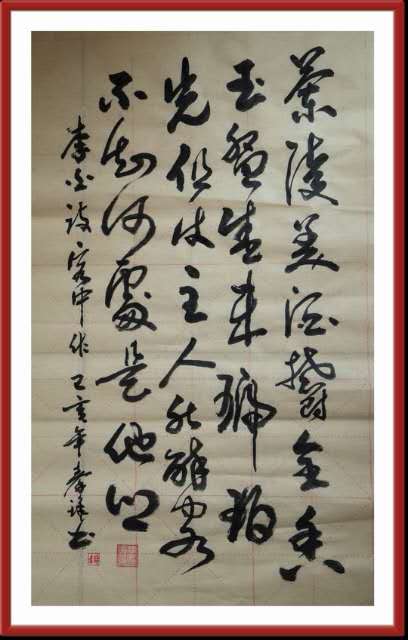 蘭陵美酒鬱金香
玉盌盛來琥珀
光但使主人能醉客
不知何處是他鄉
李白詩客中作己亥年書